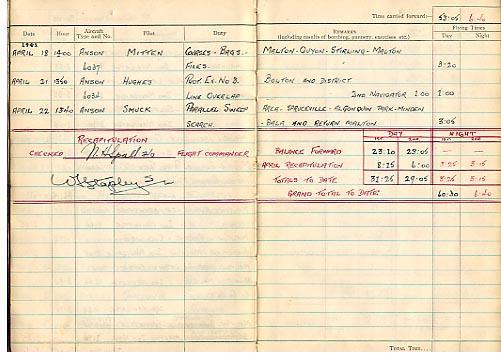 Time carried forward:— 53:05 6.40
Date Hour Aircraft Type and No. Pilot Duty Remarks Flying Times
(Including results of bombing, gunnery, exercises, etc.) Day Night
1941
APRIL 18 1400 ANSON MITTEN COURSES - BRGS - MALTON - GUYON - STIRLING - MALTON
FIXES. 3:20
APRIL 21 ANSON HUGHES PHOT. EX. NO 2. BOLTON AND DISTRICT
LINE OVERLAP 2ND NAVIGATOR 1:00 1:00
APRIL 22 1340 ANSON SMUCK PARALLEL SWEEP AREA - SPRUCEVILLE - ALGONQUIN PARK - MINDEN
SEARCH. - BALA AND RETURN MALTON 3:05
RECAPITULATION DAY NIGHT
1ST 2ND 1ST 2ND
CHECKED FLIGHT COMMANDER BALANCE FORWARD 23:10 23:05 — —
APRIL RECAPITULATION 8:15 6:00 3:25 3:15
TOTALS TO DATE 31:25 29:05 3:25 3:15
GRAND TOTAL TO DATE 60:30 6:40
TOTAL TIME....